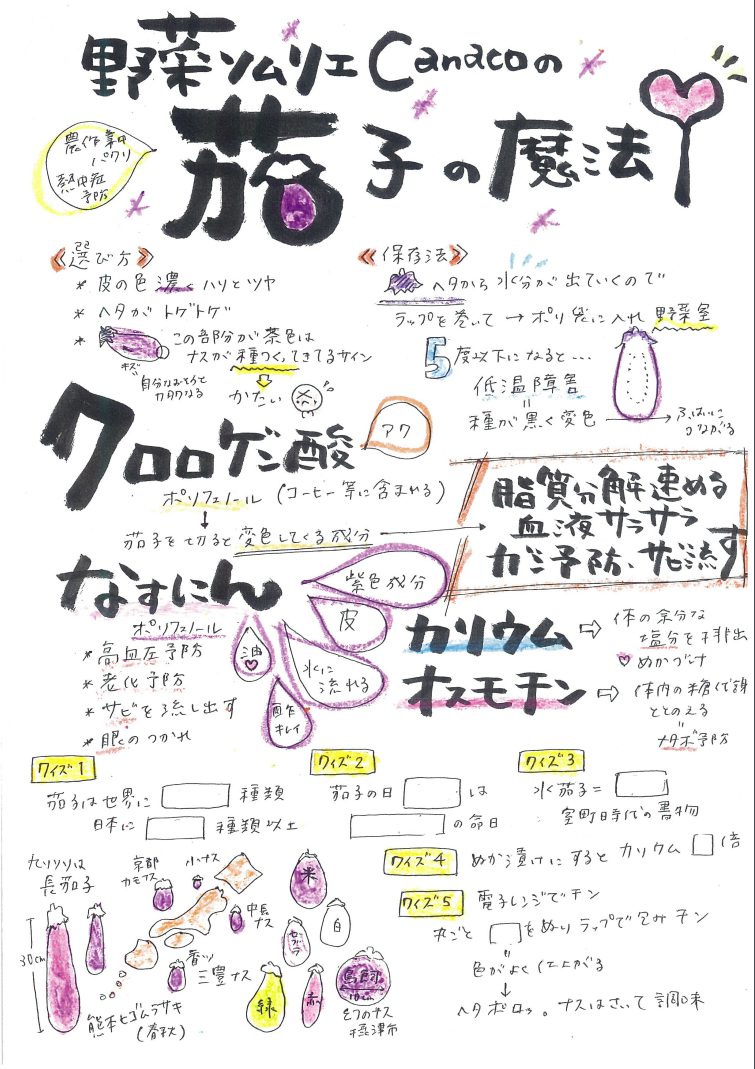 野菜ソムリエCanacoの
茄子の魔法
農作業中
パクリ
熱中症
予防
《選び方》
* 皮の色濃くハリとツヤ
* ヘタがトゲトゲ
* この部分が茶色は
ナスが種つくってきてるサイン
キズ
自分なおそうと
カタクなる
かたい
《保存法》
ヘタから水分が出ていくので
ラップを巻いて→ポリ袋に入れ野菜室
5度以下になると…
低温障害
=
種が黒く変色→ふはいに
つながる
クロロゲン酸
アク
ポリフェノール (コーヒー等に含まれる)
↓
茄子を切ると変色してくる成分→
脂質分解速める
血液サラサラ
ガン予防、サビ流す
なすにん
ポリフェノール
* 高血圧予防
* 老化予防
* サビを流し出す
* 眼のつかれ
紫色成分
皮
水に
流れる
油♡
酢
キレイ
カリウム⇨体の余分な
塩分を排出
♡ぬかづけ
オスモチン⇨体内の糖代謝
ととのえる
=
メタボ予防
クイズ1
茄子は世界に 種類
日本に 種類以上
クイズ2
茄子の日 は
の命日
クイズ3
水茄子=
室町時代の書物
クイズ4 ぬか漬けにするとカリウム 倍
クイズ5 電子レンジでチン
丸ごと をぬりラップで包みチン
=
色がよく仕上がる
↓
ヘタポロッ。ナスはさいて調味
九州は
長茄子
30cm
熊本ヒゴムラサキ
(春秋)
京都
カモナス
小ナス
中長
ナス
香川
三豊ナス
米
ゼブラ
白
緑
赤
鳥飼
10cm
幻のナス
摂津市